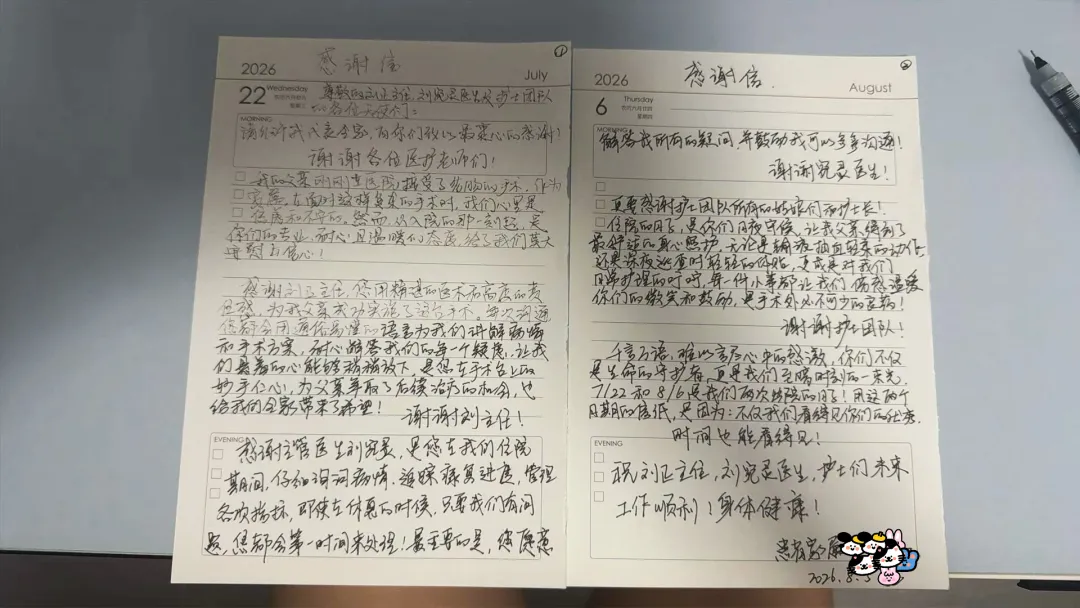 ①
感谢信
2026
July
22
Wednesday
星期三
尊敬的刘正主任、刘宛灵医生及护士团队
的各位天使们：
MORNING
请允许我代表全家，向你们致以最衷心的感谢！
谢谢各位医护老师们！
我的父亲刚刚在医院接受了的手术，作为
家属，在面对这样复杂的手术时，我们心里是
和不安的。然而从入院的那一刻起，是
你们的专业、耐心且温暖的态度，给了我们莫大
信心！
感谢刘正主任，您用精湛的医术和高度的责
任感，为我父亲成功实施了这台手术。每次沟通
您都会用通俗易懂的语言为我们讲解病情
和手术方案，耐心解答我们的每一个疑虑，让我
们悬着的心能够稍稍放下，是您在手术台上的
妙手仁心，为父亲争取了后续治疗的机会，也
给我们全家带来了希望！
谢谢刘主任！
EVENING
感谢主管医生刘宛灵，是您在我们住院
期间，仔细询问病情、追踪康复进度、管理
各项指标，即使在休息的时候，只要我们有问
题，您都会第一时间来处理！最重要的是，您愿意
②
感谢信.
2026
August
6
Thursday
星期四
MORNING
解答我所有的疑问，并鼓励我可以多多沟通！
谢谢宛灵医生！
更要感谢护士团队所有的姑娘们和护士长！
住院的日子，是你们日夜守候，让我父亲得到了
最舒适的身心照护，无论是输液抽血轻柔的动作
还是深夜巡查时轻轻的体贴，更或是对我们
日常护理的叮咛，每一件小事都让我们倍感温暖
你们的微笑和鼓励，是手术外必不可少的良药！
谢谢护士团队！
千言万语，难以言尽心中的感激，你们不仅
是生命的守护者，更是我们至暗时刻的一束光，
7/22 和 8/6 是我们两次出院的日子！用这两个
日期的信纸，是因为：不仅我们看得见你们的付出，
时间也能看得见！
EVENING
祝刘正主任，刘宛灵医生，护士们未来
工作顺利！身体健康！
患者家属
2026.8.